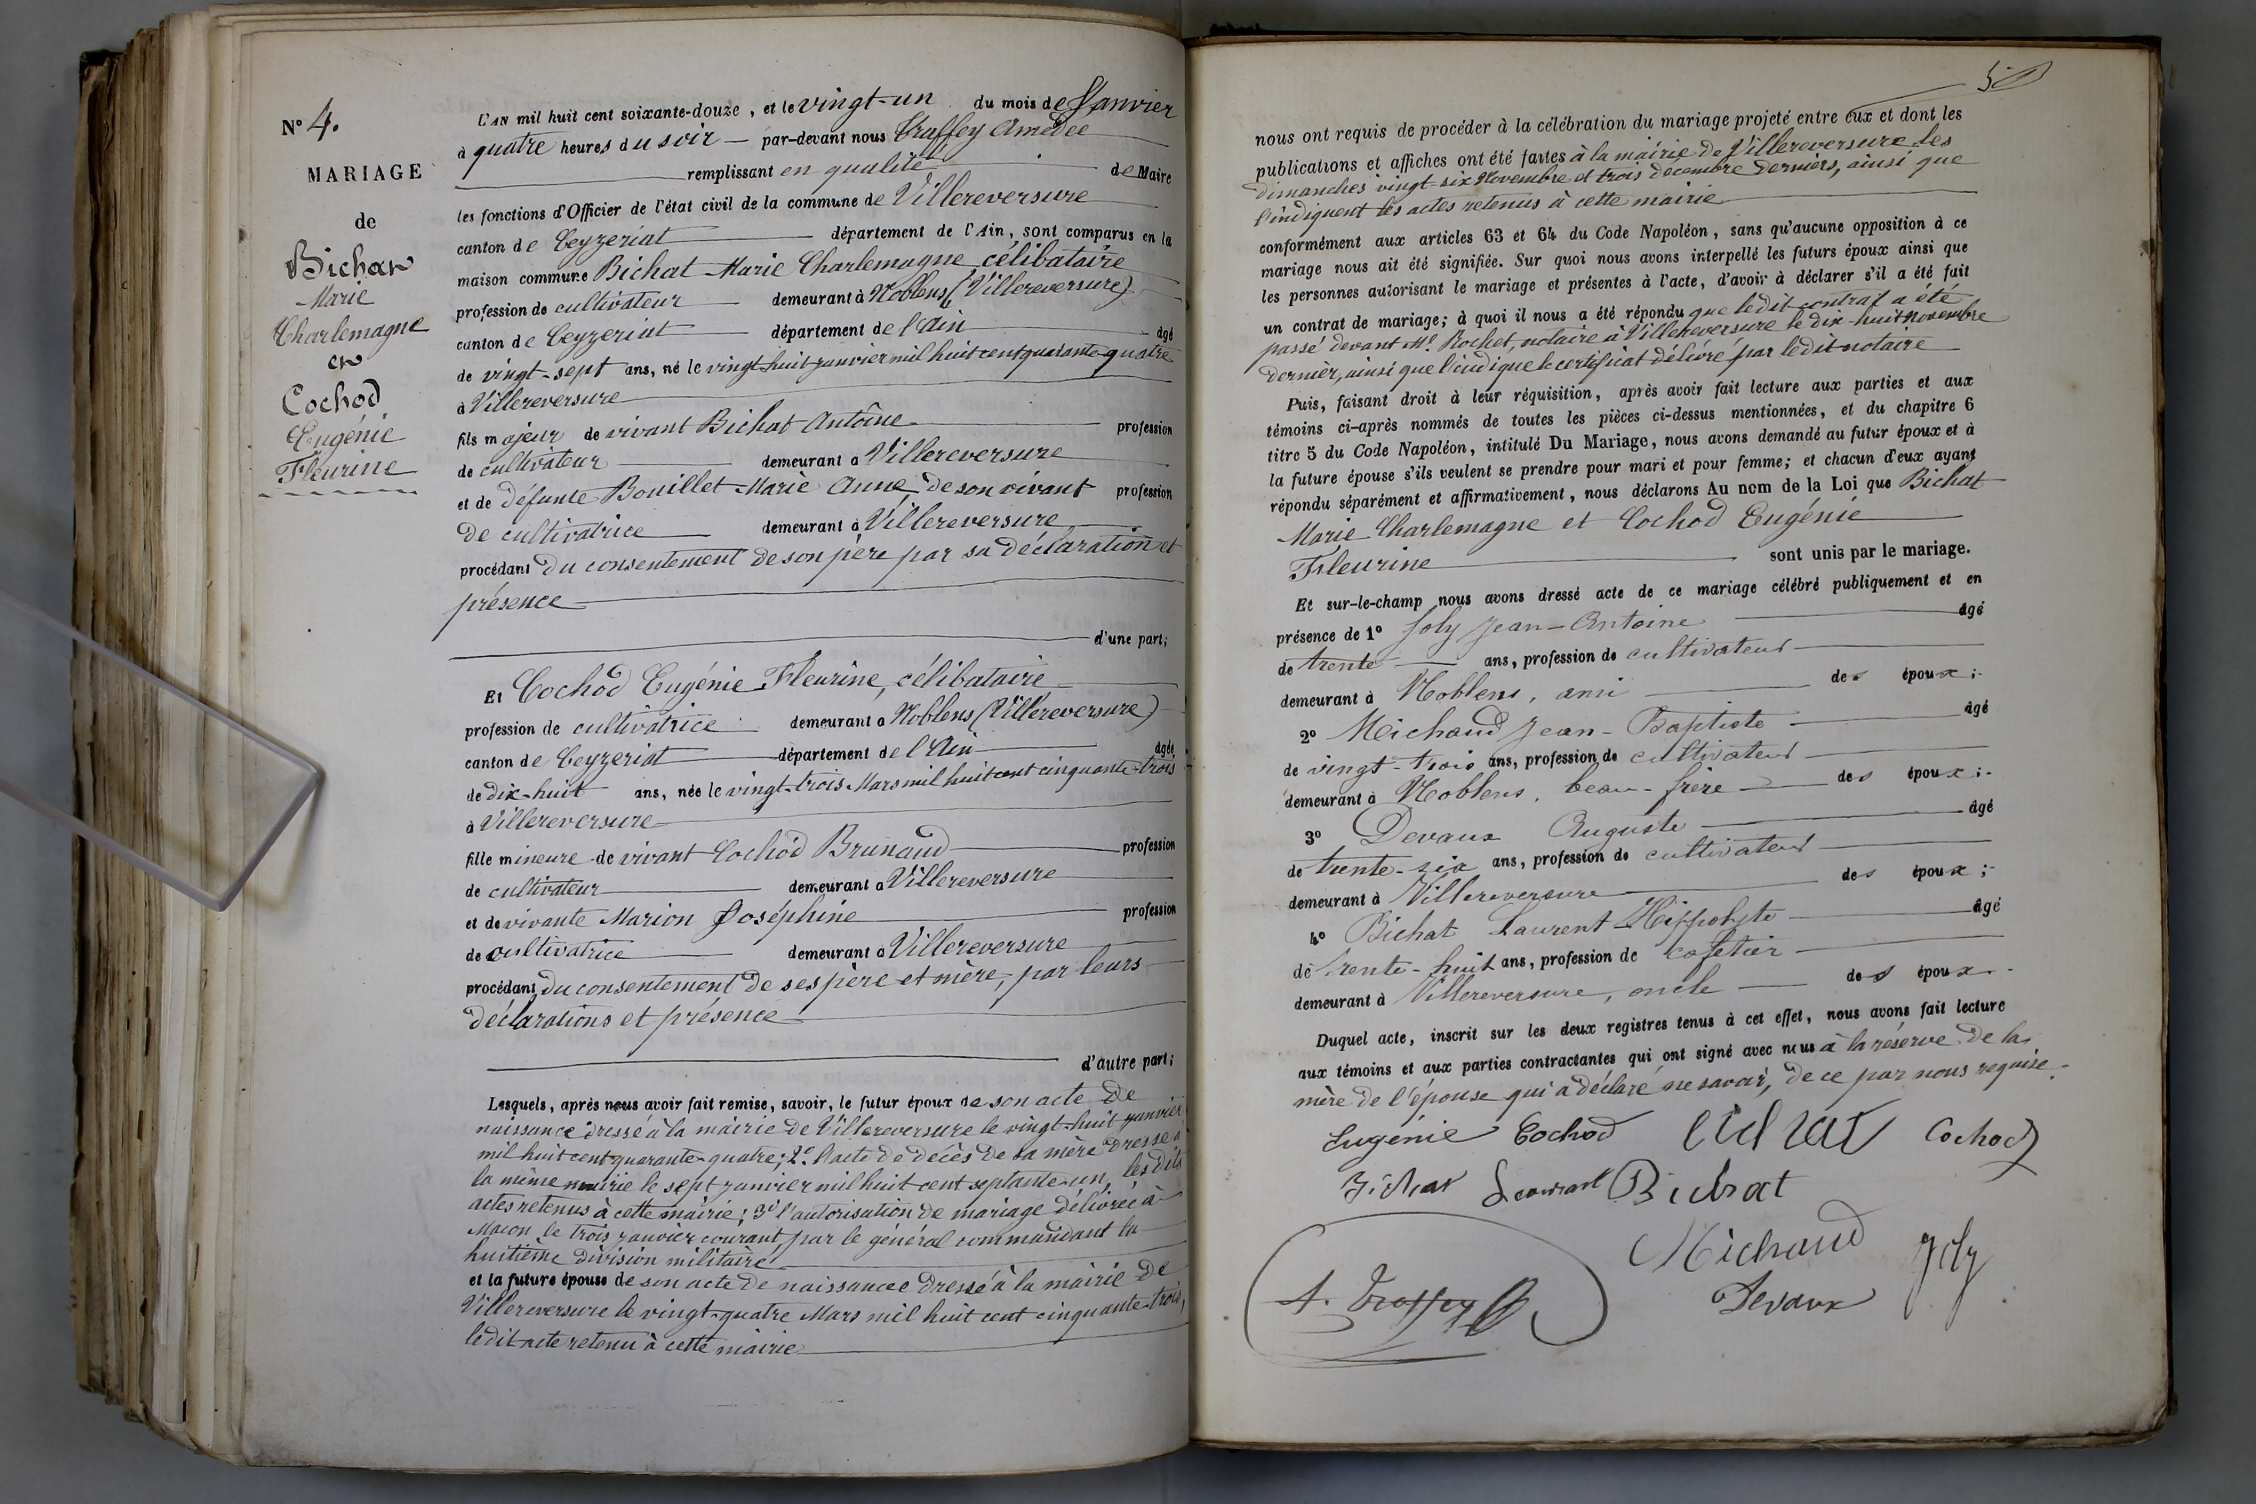 N° 4.
MARIAGE
de
Bichat
Marie
Charlemagne
et
Cochod
Eugénie
Fleurine
L'AN mil huit cent soixante-douze, et le vingt-un du mois de Janvier
à quatre heures du soir par-devant nous Traffey Amédée
remplissant en qualité de Maire
les fonctions d'Officier de l'état civil de la commune de Villereversure
canton de Ceyzeriat département de l'Ain, sont comparus en la
maison commune Bichat Marie Charlemagne célibataire
profession de cultivateur demeurant à Noblens (Villereversure)
canton de Ceyzeriat département de l'Ain âgé
de vingt-sept ans, né le vingt-huit janvier mil huit cent quarante-quatre
à Villereversure
fils majeur de vivant Bichat Antoine profession
de cultivateur demeurant à Villereversure
et de défunte Bouillet Marie Anne, de son vivant profession
de cultivatrice demeurant à Villereversure
procédant du consentement de son père par sa déclaration et
présence
d'une part;
Et Cochod Eugénie Fleurine, célibataire
profession de cultivatrice demeurant à Noblens (Villereversure)
canton de Ceyzeriat département de l'Ain âgée
de dix-huit ans, née le vingt-trois Mars mil huit cent cinquante-trois
à Villereversure
fille mineure de vivant Cochod Brunaud profession
de cultivateur demeurant à Villereversure
et de vivante Marion Joséphine profession
de cultivatrice demeurant à Villereversure
procédant du consentement de ses père et mère, par leurs
déclarations et présence
d'autre part;
Lesquels, après nous avoir fait remise, savoir, le futur époux de son acte de
naissance dressé à la mairie de Villereversure le vingt-huit janvier
mil huit cent quarante-quatre; 2° l'acte de décès de sa mère dressé à
la même mairie le sept janvier mil huit cent septante-un, les dits
actes retenus à cette mairie; 3° l'autorisation de mariage délivrée à
Macon le trois janvier courant, par le général commandant la
huitième division militaire
et la future épouse de son acte de naissance dressé à la mairie de
Villereversure le vingt-quatre Mars mil huit cent cinquante-trois,
ledit acte retenu à cette mairie
nous ont requis de procéder à la célébration du mariage projeté entre eux et dont les
publications et affiches ont été faites à la mairie de Villereversure les
dimanches vingt-six Novembre et trois décembre derniers, ainsi que
l'indiquent les actes retenus à cette mairie
conformément aux articles 63 et 64 du Code Napoléon, sans qu'aucune opposition à ce
mariage nous ait été signifiée. Sur quoi nous avons interpellé les futurs époux ainsi que
les personnes autorisant le mariage et présentes à l'acte, d'avoir à déclarer s'il a été fait
un contrat de mariage; à quoi il nous a été répondu que ledit contrat a été
passé devant Me. Rochet, notaire à Villereversure le dix-huit novembre
dernier, ainsi que l'indique le certificat délivré par ledit notaire
Puis, faisant droit à leur réquisition, après avoir fait lecture aux parties et aux
témoins ci-après nommés de toutes les pièces ci-dessus mentionnées, et du chapitre 6
titre 5 du Code Napoléon, intitulé Du Mariage, nous avons demandé au futur époux et à
la future épouse s'ils veulent se prendre pour mari et pour femme; et chacun d'eux ayant
répondu séparément et affirmativement, nous déclarons Au nom de la Loi que Bichat
Marie Charlemagne et Cochod Eugénie
Fleurine sont unis par le mariage.
Et sur-le-champ nous avons dressé acte de ce mariage célébré publiquement et en
présence de 1° Joly Jean-Antoine âgé
de trente ans, profession de cultivateur
demeurant à Noblens, ami des époux;
2° Michaud Jean-Baptiste âgé
de vingt-trois ans, profession de cultivateur
demeurant à Noblens, beau-frère des époux;
3° Devaux Auguste âgé
de trente-six ans, profession de cultivateur
demeurant à Villereversure des époux;
4° Bichat Laurent-Hippolyte âgé
de trente-huit ans, profession de cafetier
demeurant à Villereversure, oncle des époux
Duquel acte, inscrit sur les deux registres tenus à cet effet, nous avons fait lecture
aux témoins et aux parties contractantes qui ont signé avec nous à la réserve de la
mère de l'épouse qui a déclaré ne savoir, de ce par nous requise.
Eugénie Cochod Bichat Cochod
Bichat Laurent Bichat
Michaud Joly
A. Traffey Devaux